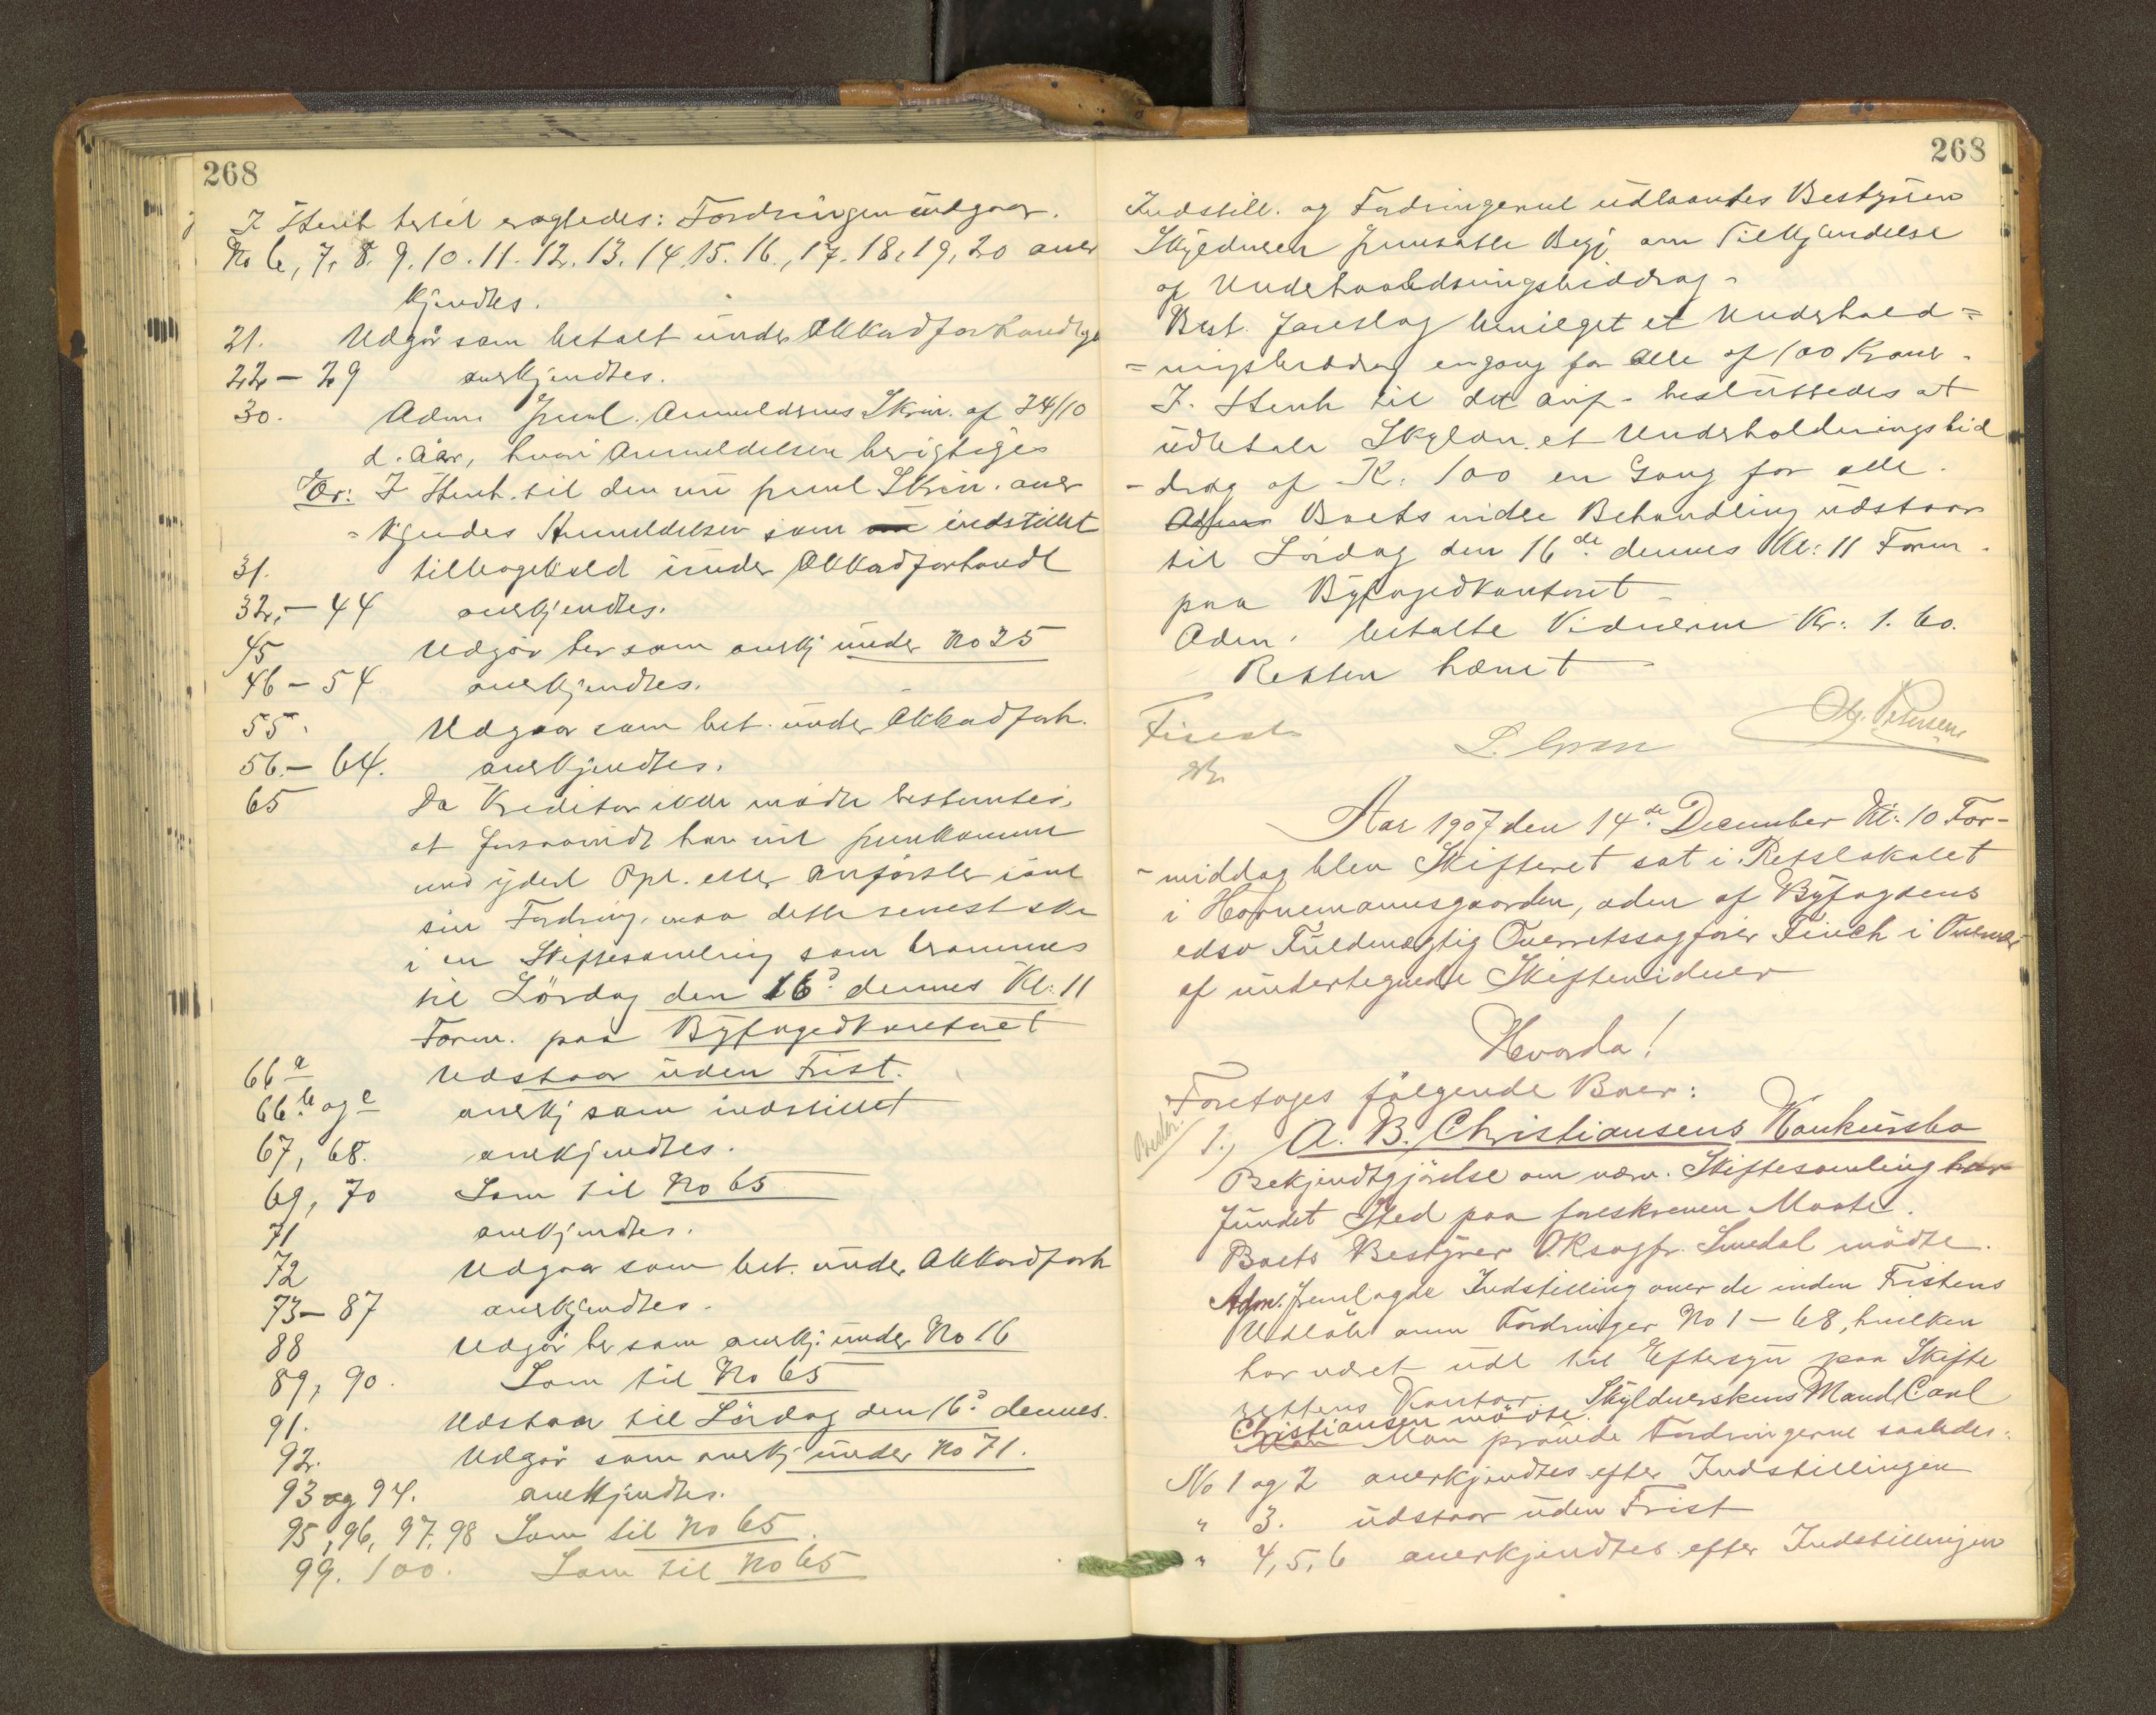 268
I Henh. hertil eragtedes: Fordringen udgaar.
No 6, 7, 8, 9. 10. 11. 12. 13. 14. 15. 16., 17. 18, 19, 20 aner
kjendtes.
21. Udgår som betalt under Akkordforhandlge
22 - 29 anerkjendtes.
30. Adm. freml. Anmelderens Skriv. af 24/10
d. Aar, hvori Anmeldelsen berigtiges
Er: I Henh. til den nu freml Skriv. aner
= kjendes Anmeldelsen som indstillet
31. tilbagekald under Akkordforhandl
32, - 44 anerkjendtes.
45 Udgår her som anerkj under No 25
46 - 54 anerkjendtes.
55. Udgaar som bet. under Akkordforh.
56. - 64. anerkjendtes.
65 Da Kreditor ikke mødte bestemtes,
at forsaavidt han vil fremkomme
med yderl Opl. eller Anførsler isml
sin Fordring, maa dette senest ske
i en Skiftesamling som berammes
til Lördag den 16d dennes Kl: 11
Form. paa Byfogedkontoret
66 a Udstaar uden Frist.
66 b og c anerkj som indstillet
67, 68. anerkjendtes.
69, 70 Som til No 65
71 anerkjendtes.
72 Udgaar som bet. under Akkordforh
73 - 87 anerkjendtes.
88 Udgår her som anerkj. under No 16
89, 90. Som til No 65
91. Udstaar til Lördag den 16d dennes.
92. Udgår som anerkj under No 71.
93 og 94. anerkjendtes.
95, 96, 97, 98 Som til No 65.
99. 100. Som til No 65
268
Indstill. og Fordringerne udlaantes Bestyren
Skyldneren fremsatte Begj om Tilkjendelse
af Underhooldningsbidrag -
Best. foreslog bevilget et Underhold =
= ningsbidrag engang for Alle af 100 Kroner.
I. Henh til det anf. besluttedes at
udbetale Skyldn. et Underholdningsbid
- drag af K: 100 en Gang for alle.
Boets vidre Behandling udstaar
til Lördag den 16de dennes Kl: 11 Form.
paa Byfogedkontoret -
Adm. betalte Vidnerne Kr: 1. 60.
Retten hævet
Finch
L. Gran
Petersen
Aar 1907 den 14de December Kl: 10 For-
- middag blev Skifteret sat i Retslokalet
i Hornemannsgaarden, adm af Byfogdens
edsv Fuldmægtig Overretssagfører Finch i Overvær
af undertegnede Skiftevidner
Hvorda!
Foretoges fölgende Boer:
Beslr.
1., A. B. Christiansens Konkursbo
Bekjendtgjörelse om nærv. Skiftesamling har
fundet Sted paa foreskreven Maate.
Boets Bestyrer O.Rsagfr. Smedal mödte.
Adm. fremlagde Indstilling over de inden Fristens
Udlöb anm Fordringer No 1 - 68, hvilken
har været udl til Eftersyn paa Skifte
rettens Kontor. Skyldnerskens Mand Carl
Christiansen mödte.
Man prövede Fordringerne saaledes:
No 1 og 2 anerkjendtes efter Indstillingen
" 3. udstaar uden Frist
" 4, 5, 6 anerkjendtes efter Indstillingen